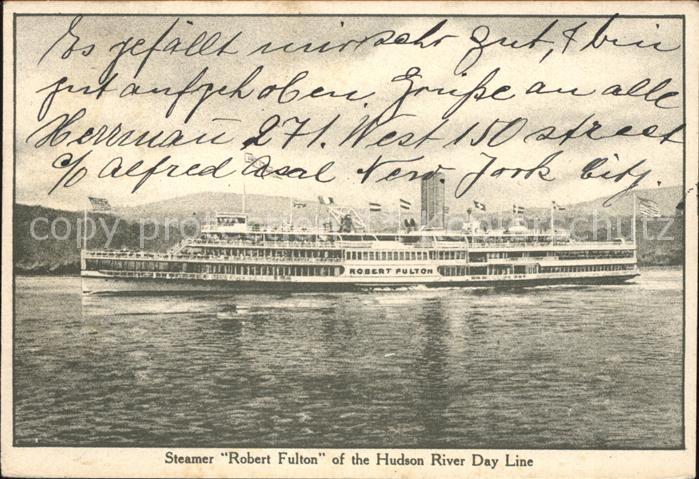 Es gefällt mir sehr gut, & bin
gut aufgehoben. Grüße an alle
Herrmañ 271. West 150 street
c/o Alfred Asal New. York City.
copyright protection
ROBERT FULTON
Steamer "Robert Fulton" of the Hudson River Day Line